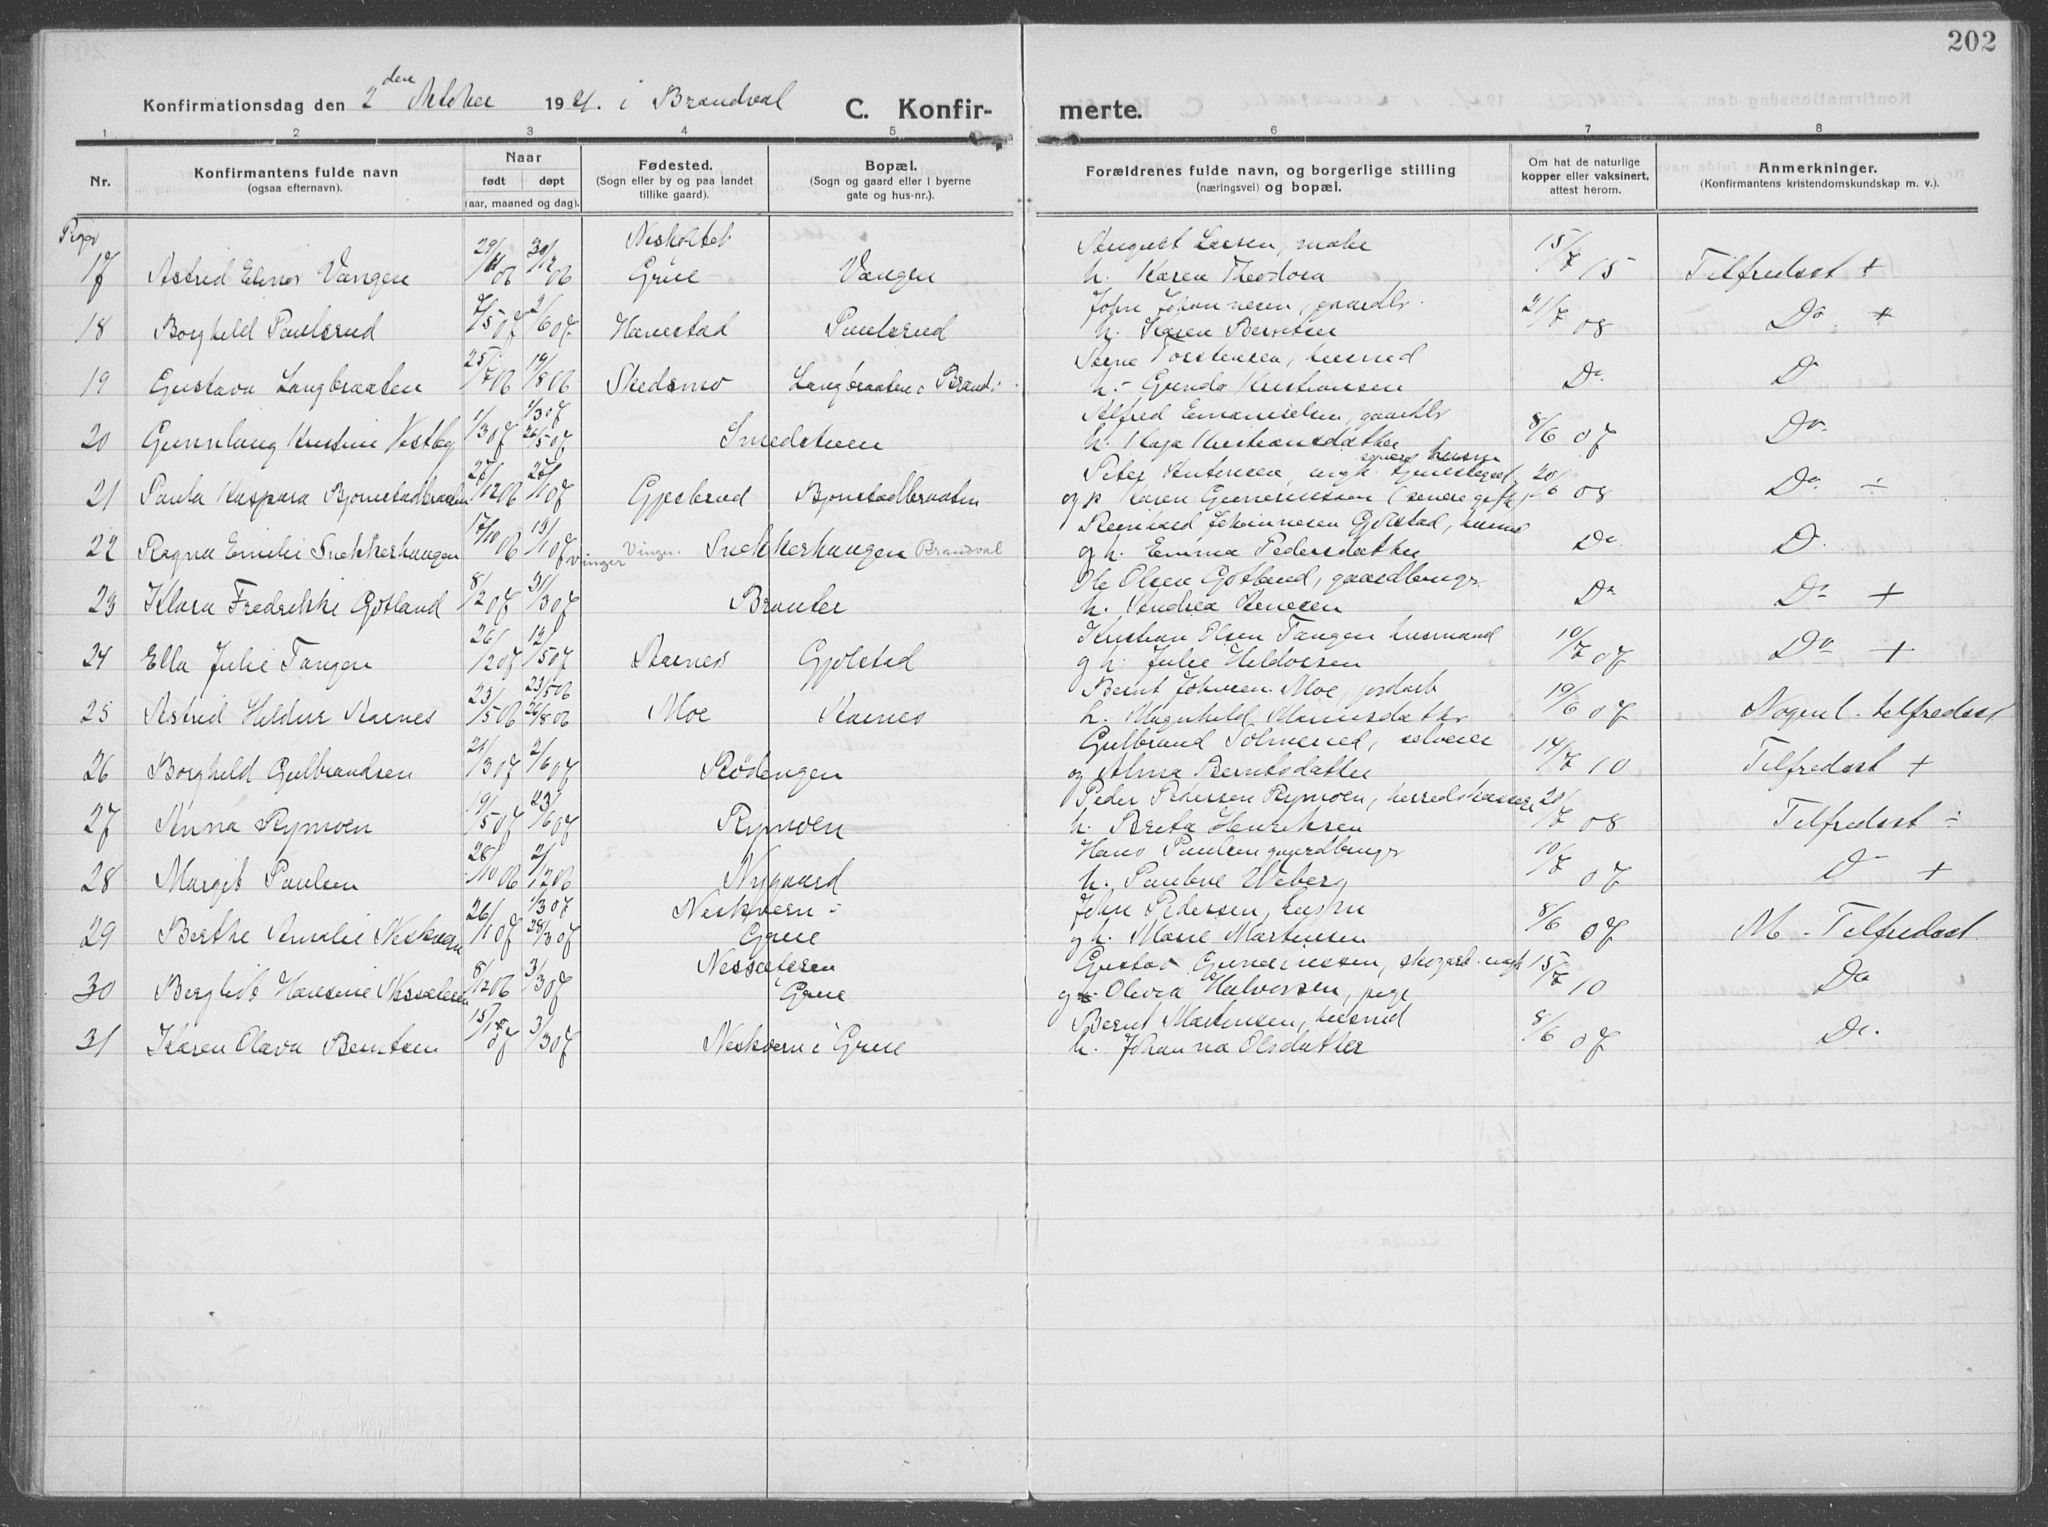 202
Konfirmationsdag den 2den Oktober 1921. i Brandval C. Konfir- merte.
1 2 3 4 5 6 7 8
Nr. Konfirmantens fulde navn (ogsaa efternavn). Naar født døpt (aar, maaned og dag). Fødested. (Sogn eller by og paa landet tillike gaard). Bopæl. (Sogn og gaard eller i byerne gate og hus-nr.). Forældrenes fulde navn, og borgerlige stilling (næringsvei) og bopæl. Om hat de naturlige kopper eller vaksinert, attest herom. Anmerkninger. (Konfirmantens kristendomskundskap m. v.).
Piger
17 Astrid Elinor Vangen 29/11 06 30/12 06 Neskoltet Grue Vangen August Larsen, maler h. Karen Theodora 15/7 15 Tilfredsst +
18 Borghild Paulsrud 7/5 07 2/6 07 Hanestad Paulsrud John Johannesen, gaardbr. h. Karen Berntsen 21/7 08 Do +
19 Gustava Langbraaten 25/7 06 19/8 06 Skedsmo Langbraaten i Brandv. Torstensen, husmd h. Gunda Kristiansen Do. D
20 Gunnlaug Kristine Vestby 1/3 07 1/3 07 26/5 07 Smedstuen Alfred Emanuelsen, gaardbr h. Kaja Kristiansdatter 8/6 07 Do.
21 Paula Kaspara Bjornstadbraaten 27/12 06 27/1 07 Gjesbrud Bjornstadbraaten Peter ungk. senere husm og p Karen Guneriussen (senere gift) 20/6 08 Do. ÷
22 Ragna Emilie Snekkerhaugen 17/10 06 13/1 07 Vinger Vinger. Snekkerhaugen Brandval Reinhard Johannesen Gjolstad, husmd og h. Emma Pedersdatter Do. D.
23 Klara Fredrikke Gotland 8/2 07 31/3 07 Branter Ole Olsen Gotlund, gaardbruger h. Andrea Hansen Do Do +
24 Ella Julie Tangen 26/1 207 12/5 07 Aarnes Gjolstad Kristian Olsen Tangen husmand og h. Julie Halvorsen 10/7 07 Do +
25 Astrid Hildur Aarnes 23/5 06 23/5 06 26/8 06 Moe Aarnes Bernt Johnsen Moe, jordarb h. Magnhild 19/6 07 Nogenl. tilfredsst
26 Borghild Gulbrandsen 21/3 07 2/6 07 Rødengen Gulbrand Tolmerud, selveier og Alma Berntsdatter 14/7 10 Tilfredsst +
27 Anna Rymoen 19/5 07 23/6 07 Rymoen Peder Pedersen Rymoen, herredskasserer h. Berta Henriksen 20/7 08 Tilfredsst ÷
28 Margit Paulsen 28/10 06 2/12 06 Nygaard Hans Paulsen gaardbruger h. Pauline Weberg 10/7 07 D +
29 Berthe Amalie Neskvern 26/1 07 1/3 07 28/3 07 Neskvern i Grue John Pedersen, husm og h. Marie Martinsen 8/6 07 M. Tilfredsst.
30 Bergliot Hansine Nessæteren 8/12 06 3/3 07 Nessæteren Grue Gustav Guneriussen, skogarb. ungk og Olivia Halvorsen, pige 15/7 10 Do
31 Karen Olava Berntsen 15/1 07 3/3 07 Neskvern i Grue Bernt Martinsen, husmd h. Johanna Olsdatter 8/6 07 Do.